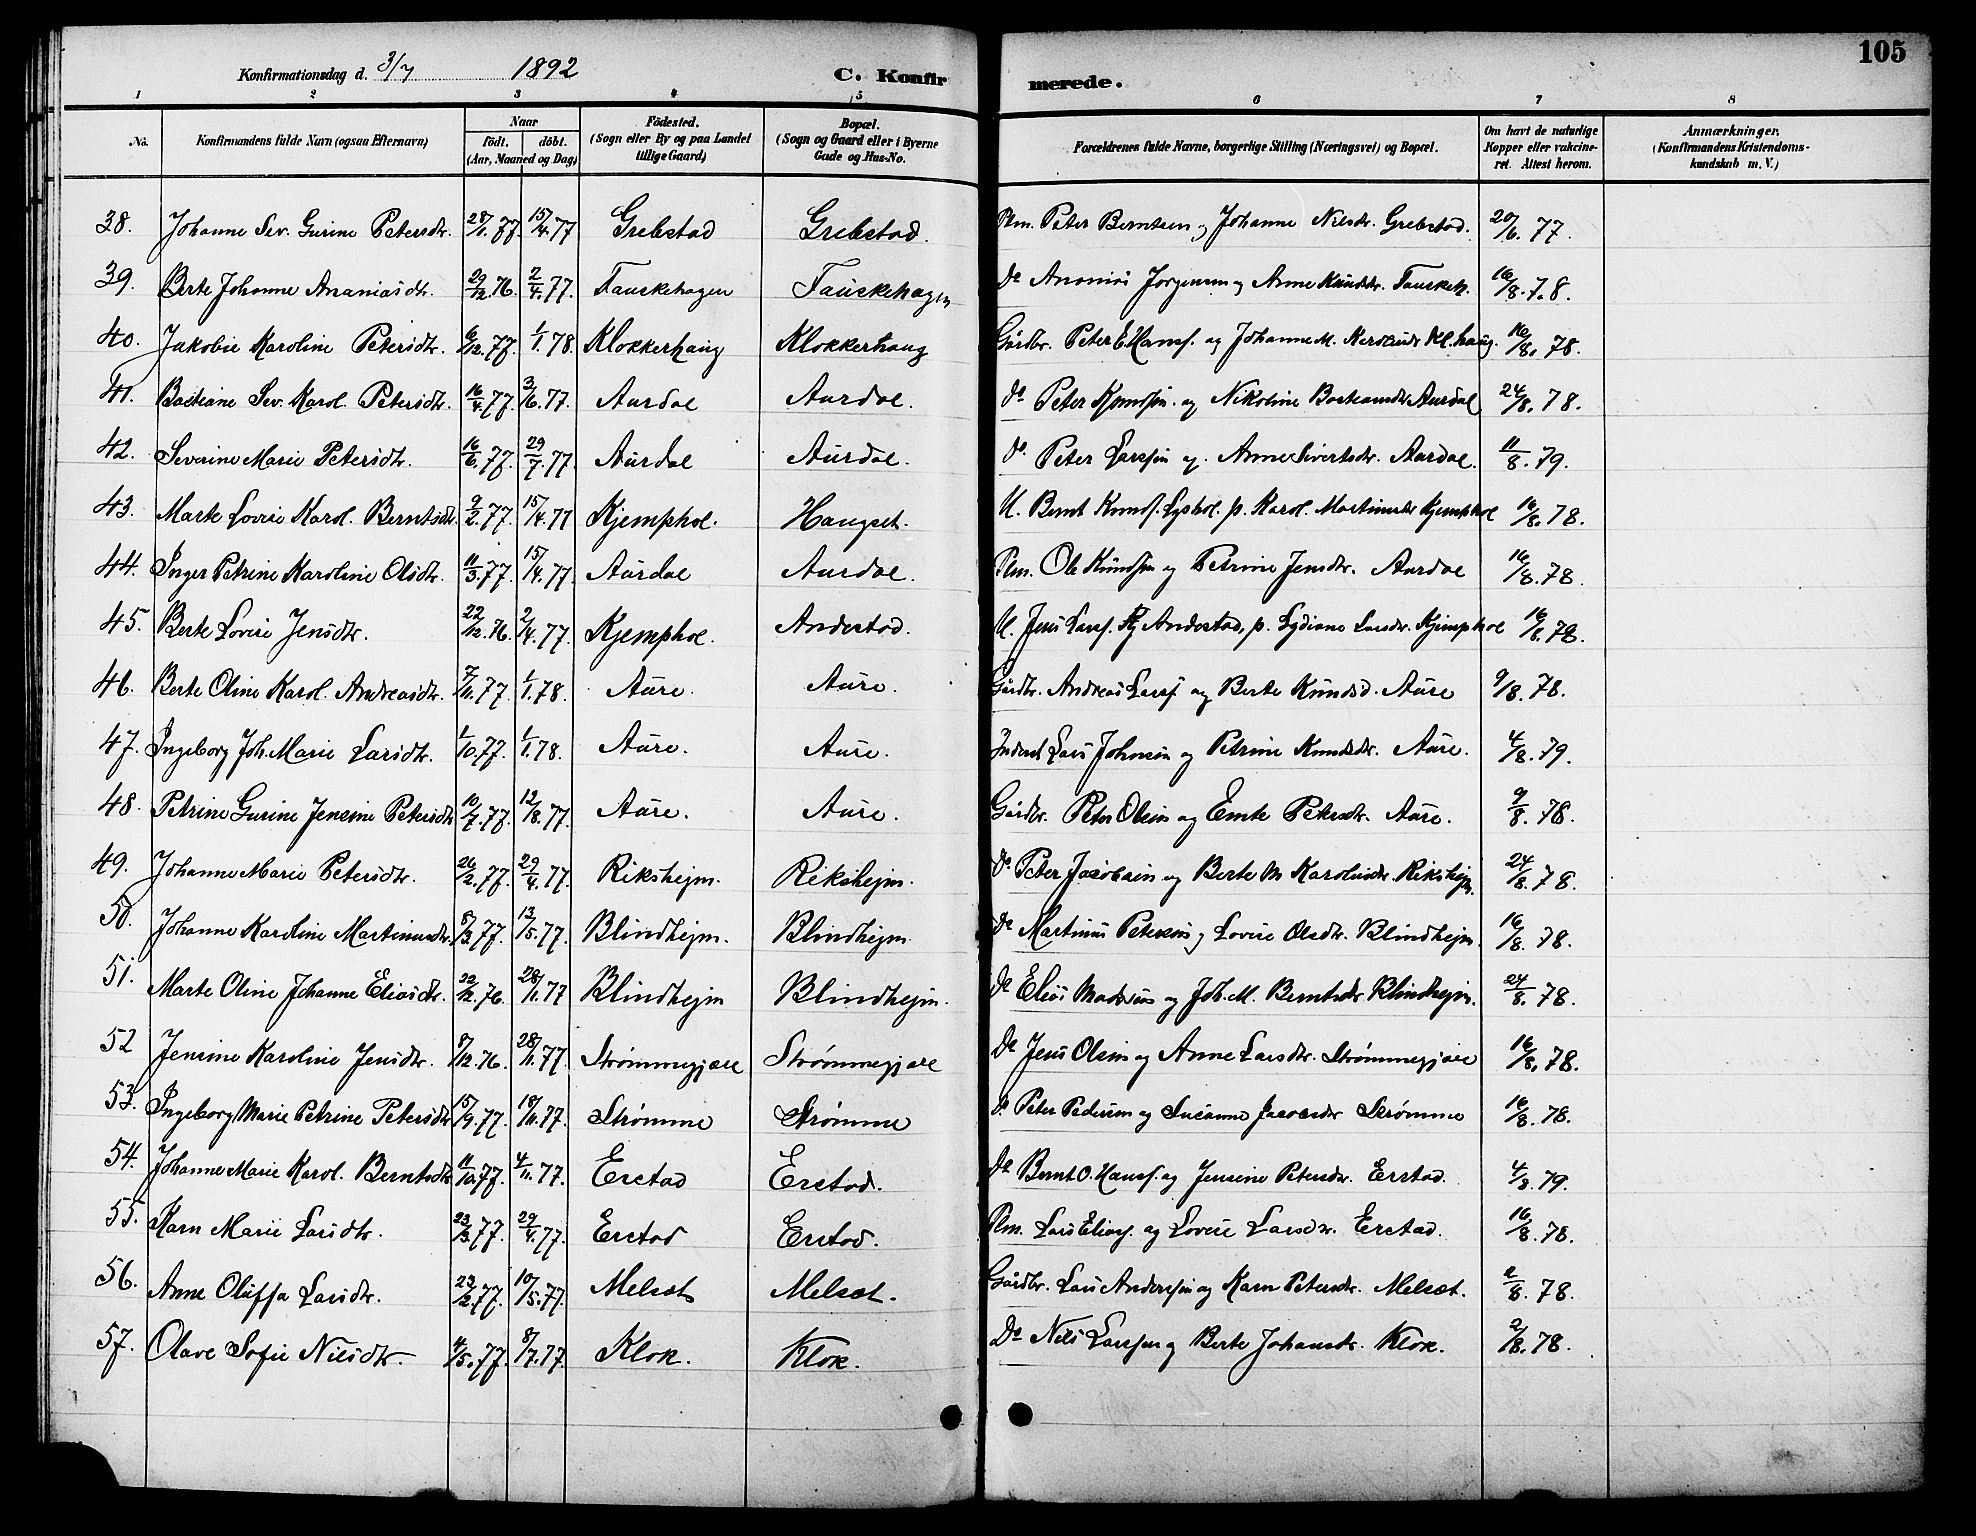 105
Konfirmationsdag d. 3/7 1892 C. Konfirmerede.
1 2 3 4 5 6 7 8
No. Konfirmandens fulde Navn (ogsaa Efternavn) Naar født. døbt. (Aar, Maaned og Dag) Födested. (Sogn eller By og paa Landet tillige Gaard) Bopæl. (Sogn og Gaard eller i Byerne Gade og Hus-No. Forældrenes fulde Navne, borgerlige Stilling (Næringsvei) og Bopæl. Om havt de naturlige Kopper eller vakcineret. Attest herom. Anmærkninger. (Konfirmandens Kristendomskundskab m. V.)
38. Johanne Sev. Gurine Petersdtr. 28/1.77. 15/4.77 Grebstad Grebstad. Plm. Peter Berntsen og Johanne Nilsdtr. Grebstad. 20/6.77.
39. Berte Johanne Ananiasdtr. 29/12.76. 2/4.77. Fauskehagen Fauskehagen Do Ananias Jørgensen og Anne Knudsdtr. Fauskeh. 16/8.78.
40. Jakobie Karoline Petersdtr. 6/12.77. 1/1.78. Klokkerhaug Klokkerhaug Gårdbr. Peter E Hansf. og Johanne M. Kl.haug. 16/8.78.
41. Bastiane Sev. Karol. Petersdtr. 16/4.77. 3/6.77. Aurdal Aurdal. Do Peter Knudsen. og Nikoline Bastiansdtr Aurdal 24/8.78.
42. Severine Marie Petersdtr. 16/6.77. 29/7.77. Aurdal Aurdal. Do Peter Larssen og. Anne Sivertsdtr. Aurdal. 11/8.79.
43. Marte Lovise Karol. Berntsdtr. 9/2.77. 15/4.77 Kjemphol. Haugset. U. Bernt Knudsf. Lyshol. p. Karol. Martinusdtr Kjemphol 16/8.78.
44. Inger Petrine Karoline Olsdtr. 11/3.77. 15/4.77 Aurdal Aurdal. Plm. Ole Knudsen og Petrine Jensdtr. Aurdal 16/8.78.
45. Berte Lovise Jensdtr. 22/12.76. 2/4.77. Kjemphol. Andestad. U. Jens Larsf. Andestad, p. Lydiane Larsdtr. Kjemphol 16/8.78.
46. Berte Oline Karol. Andreasdtr. 7/11.77. 1/1.78. Aure. Aure. Gårdbr. Andreas Larsf og Berte Knudsd. Aure 9/8.78.
47. Ingeborg Joh. Marie Larsdtr. 1/10.77. 1/1.78. Aure. Aure. Inderst Lars Johnsen og Petrine Knudsdtr. Aure. 4/8.79.
48. Petrine Gurine Jensine Petersdtr 10/7.77. 12/8.77. Aure. Aure. Gårdbr. Peter Olsen og Emte Petersdtr. Aure. 9/8.78.
49. Johanne Marie Petersdtr. 26/2.77. 29/4.77. Rikshejm. Rekshejm. Do Peter Jacobsen og Berte M Karolusdtr. Rikshejm. 24/8.78.
50. Johanne Karoline Martinusdtr. 8/3.77. 13/5.77. Blindhejm. Blindhejm. Do Martinus Petersen og Lovise Olsdtr. Blindhejm. 16/8.78.
51. Marte Oline Johanne Eliasdtr. 22/12.76. 28/1.77 Blindhejm Blindhejm. Do Elias Madssen og Joh. M. Berntsdtr Blindhejm. 24/8.78.
52 Jensine Karoline Jensdtr. 8/12.76. 28/1.77. Strømmegjære Strømmegjære Do Jens Olsen og Anne Larsdtr. Strømmegjære 16/8.78.
53. Ingeborg Marie Petrine Petersdtr 15/9.77. 18/11.77. Strømme Strømme Do Peter Pedersen og Susanne Jacobsdtr Strømme 16/8.78.
54. Johanne Marie Karol. Berntsdtr 11/10.77. 4/11.77. Erstad Erstad. Do Bernt O. Hansf. og Jensine Petersdtr. Erstad. 4/8.79.
55. Karn Marie Larsdtr. 23/3.77. 29/4.77. Erstad Erstad. Plm. Lars Eliasf. og Lovise Larsdtr. Erstad. 16/8.78.
56. Anne Oluffa Larsdtr. 23/2.77. 10/5.77. Melsæt Melsæt. Gårdbr. Lars Anderssen og Karn Petersdtr. Melsæt. 2/8.78.
57. Olave Sofie Nilsdtr. 4/5.77. 8/7.77. Klok. Klok. Do Nils Larssen og Berte Johansdtr. Klok. 2/8.78.